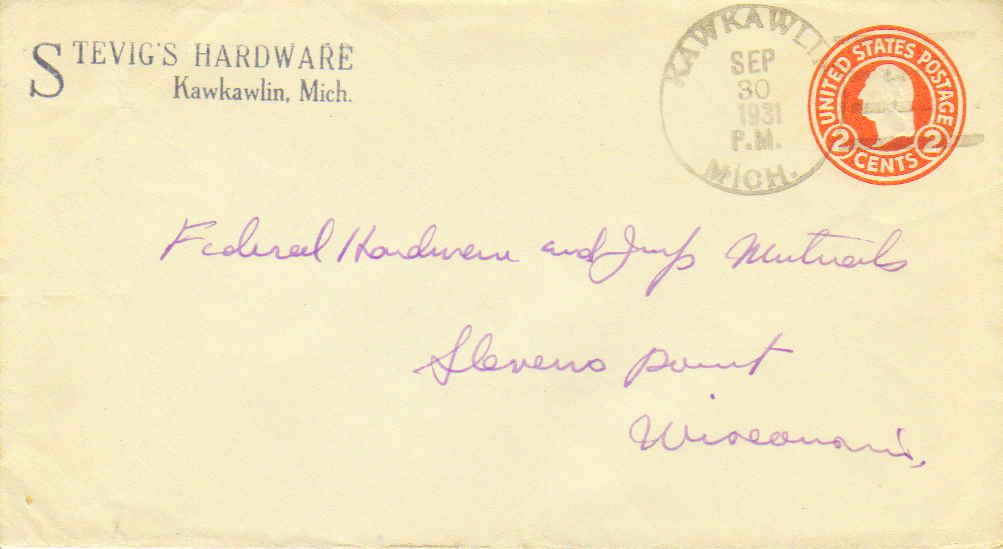 STEVIG'S HARDWARE
Kawkawlin, Mich.
KAWKAWLIN
SEP
30
1931
P.M.
MICH.
UNITED STATES POSTAGE
2 CENTS 2
Federal Hardware and Imp Mutuals
Stevens Point
Wisconsin.